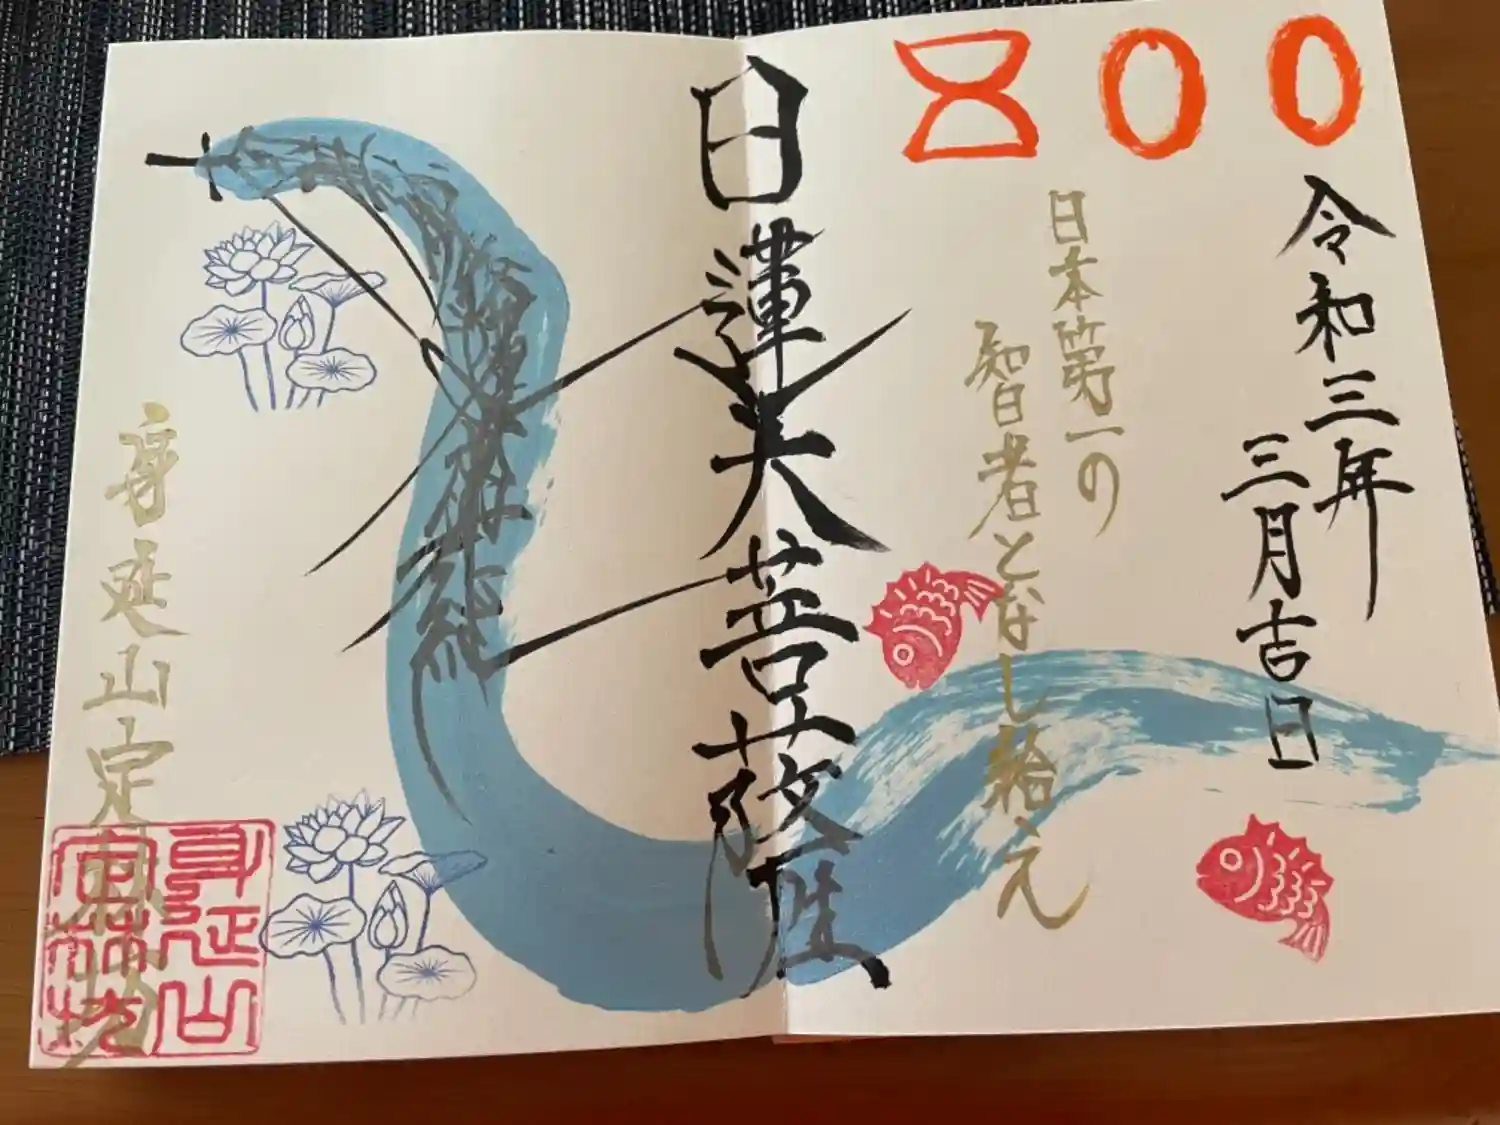 800
令和三年
三月吉日
日本第一の
智者となし給え
日蓮大菩薩
身延山定林坊
身延山
定林坊